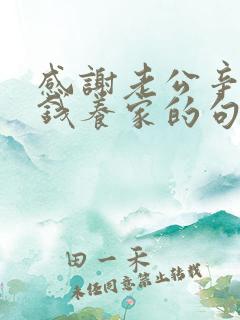 感謝老公辛
錢養家的句
田一禾
未经同意禁止转载